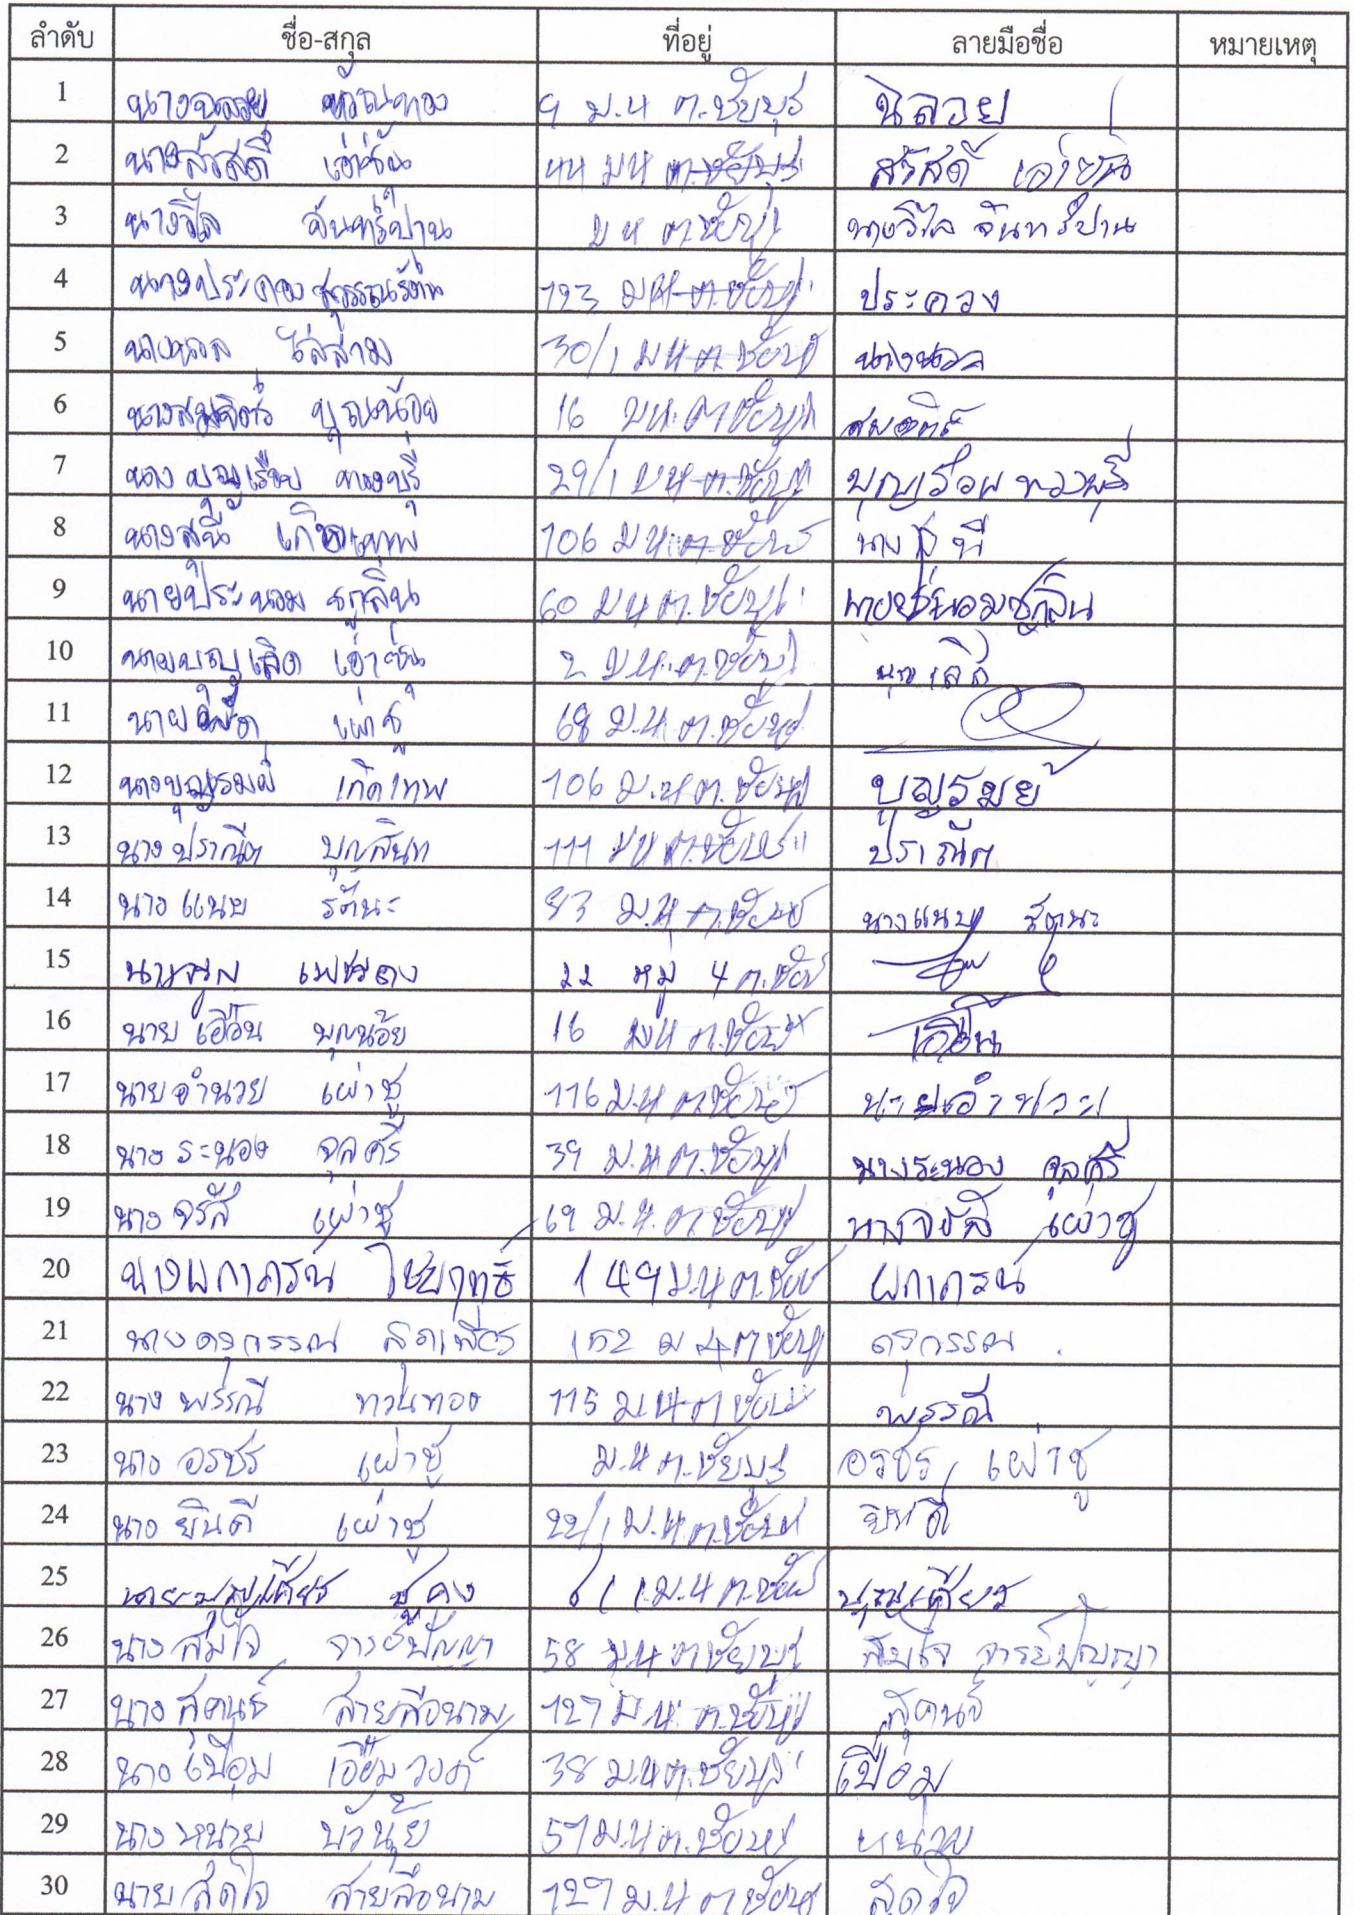 ลำดับ ชื่อ-สกุล ที่อยู่ ลายมือชื่อ หมายเหตุ
1 นางฉลวย 9 ม.4 ต.ชัยบุรี ฉลวย
2 นางสวัสดิ์ เอ่าซั้น 44 ม4 ต.ชัยบุรี สวัสดิ์ เอ่าซั้น
3 นางวิไล จันทร์ปาน ม 4 ต.ชัยบุรี นางวิไล จันทร์ปาน
4 นางประคอง สุวรรณรัตน์ 123 ม4 ต.ชัยบุรี ประคอง
5 นางนวล ไล่สาม 30/1 ม4 ต.ชัยบุรี นางนวล
6 นางสมจิตร์ บุญน้อย 16 ม4 ต.ชัยบุรี สมจิตร์
7 นางบุญเรือบ ทองบุรี 29/1 ม4 ต.ชัยบุรี
8 นางสุนี เกิดเทพ 106 ม4 ต.ชัยบุรี นางสุนี
9 นายประนอม ชูกลิ่น 60 ม4 ต.ชัยบุรี นายประนอม ชูกลิ่น
10 นายบุญเลิศ เอ่าซั้น 2 ม4 ต.ชัยบุรี บุญเลิศ
11 นาย เผ่าชู 68 ม.4 ต.ชัยบุรี
12 นางบุญรมย์ เกิดเทพ 106 ม.4 ต.ชัยบุรี บุญรมย์
13 นางปราณีต บุญสินท 111 ม4 ต.ชัยบุรี ปราณีต
14 นางแนบ รัตนะ 83 ม.4 ต.ชัยบุรี นางแนบ รัตนะ
15 เพชรคง 22 หมู่ 4 ต.ชัยบุรี
16 นายเอื้อน บุญน้อย 16 ม4 ต.ชัยบุรี เอื้อน
17 นายอำนวย เผ่าชู 116 ม.4 ต.ชัยบุรี นายอำนวย
18 นางระนอง จุลศรี 39 ม.4 ต.ชัยบุรี นางระนอง จุลศรี
19 นางจรัส เผ่าชู 69 ม.4 ต.ชัยบุรี นางจรัส เผ่าชู
20 นางผกาภรณ์ ไชยฤทธิ์ 149 ม.4 ต.ชัยบุรี ผกาภรณ์
21 นางดรุวรรณ 152 ม 4 ต.ชัยบุรี ดรุวรรณ
22 นางพรรณี ทวนทอง 115 ม.4 ต.ชัยบุรี พรรณี
23 นางอรชร เผ่าชู ม.4 ต.ชัยบุรี อรชร เผ่าชู
24 นางยินดี เผ่าชู 22/1 ม.4 ต.ชัยบุรี ยินดี
25 นายบุญเคียง ชูคง ม.4 ต.ชัยบุรี
26 นางสมใจ จารย์ปัญญา 58 ม.4 ต.ชัยบุรี สมใจ จารย์ปัญญา
27 นางสุคนธ์ สายลือนาม 127 ม.4 ต.ชัยบุรี สุคนธ์
28 นางเปื้อม เอียมวงศ์ 38 ม.4 ต.ชัยบุรี เปื้อม
29 นางหน่าย บัวนุ้ย 57 ม.4 ต.ชัยบุรี หน่าย
30 นายสุดใจ สายลือนาม 127 ม.4 ต.ชัยบุรี สุดใจ